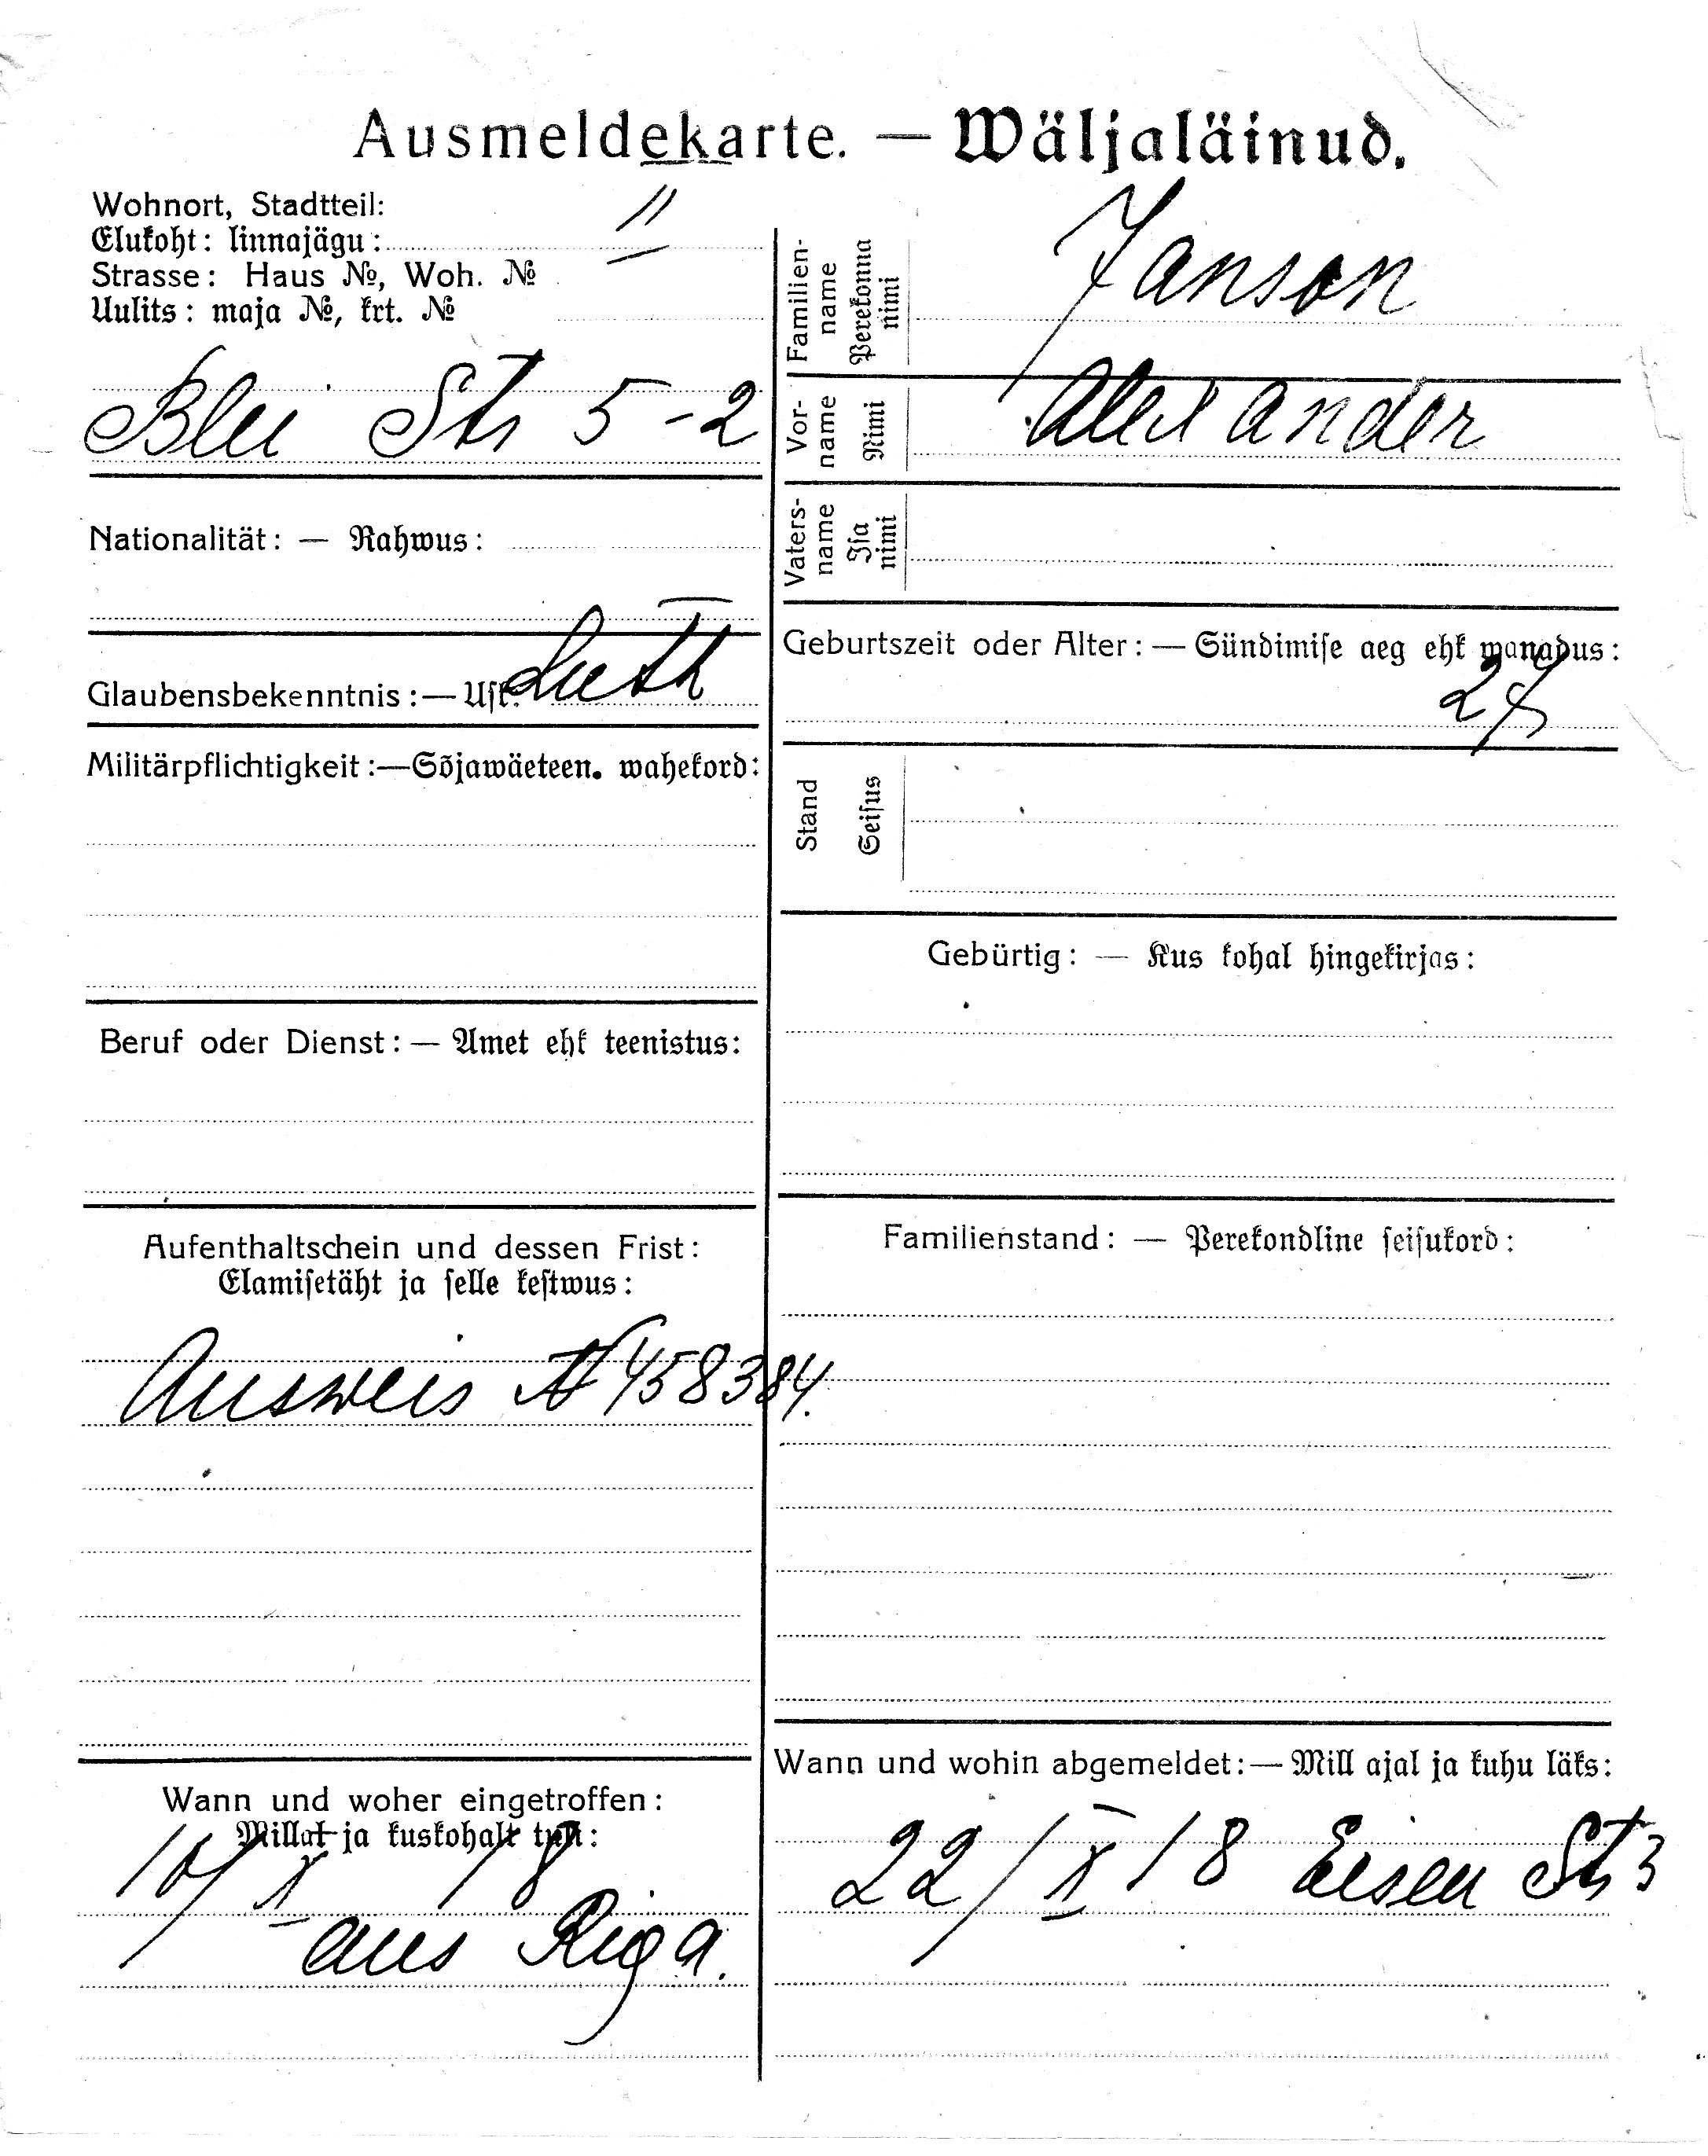 Ausmeldekarte. — Wäljaläinud.
Wohnort, Stadtteil:
Elukoht: linnajägu: II
Strasse: Haus №, Woh. №
Uulits: maja №, krt. №
Blei Str 5-2
Nationalität: — Rahwus:
Glaubensbekenntnis: — Usk: Luth
Militärpflichtigkeit:—Sõjawäeteen. wahekord:
Beruf oder Dienst: — Amet ehk teenistus:
Aufenthaltschein und dessen Frist:
Elamisetäht ja selle kestwus:
Ausweis № 458384.
Wann und woher eingetroffen:
Millal ja kuskohalt tuli:
10/X 18
aus Riga.
Familien-name Perekonna nimi Janson
Vor-name Nimi Alexander
Vaters-name Isa nimi
Geburtszeit oder Alter: — Sündimise aeg ehk wanadus:
Stand Seisus
Gebürtig: — Kus kohal hingekirjas:
Familienstand: — Perekondline seisukord:
Wann und wohin abgemeldet: — Mill ajal ja kuhu läks:
22/X 18 Eisen Str 3